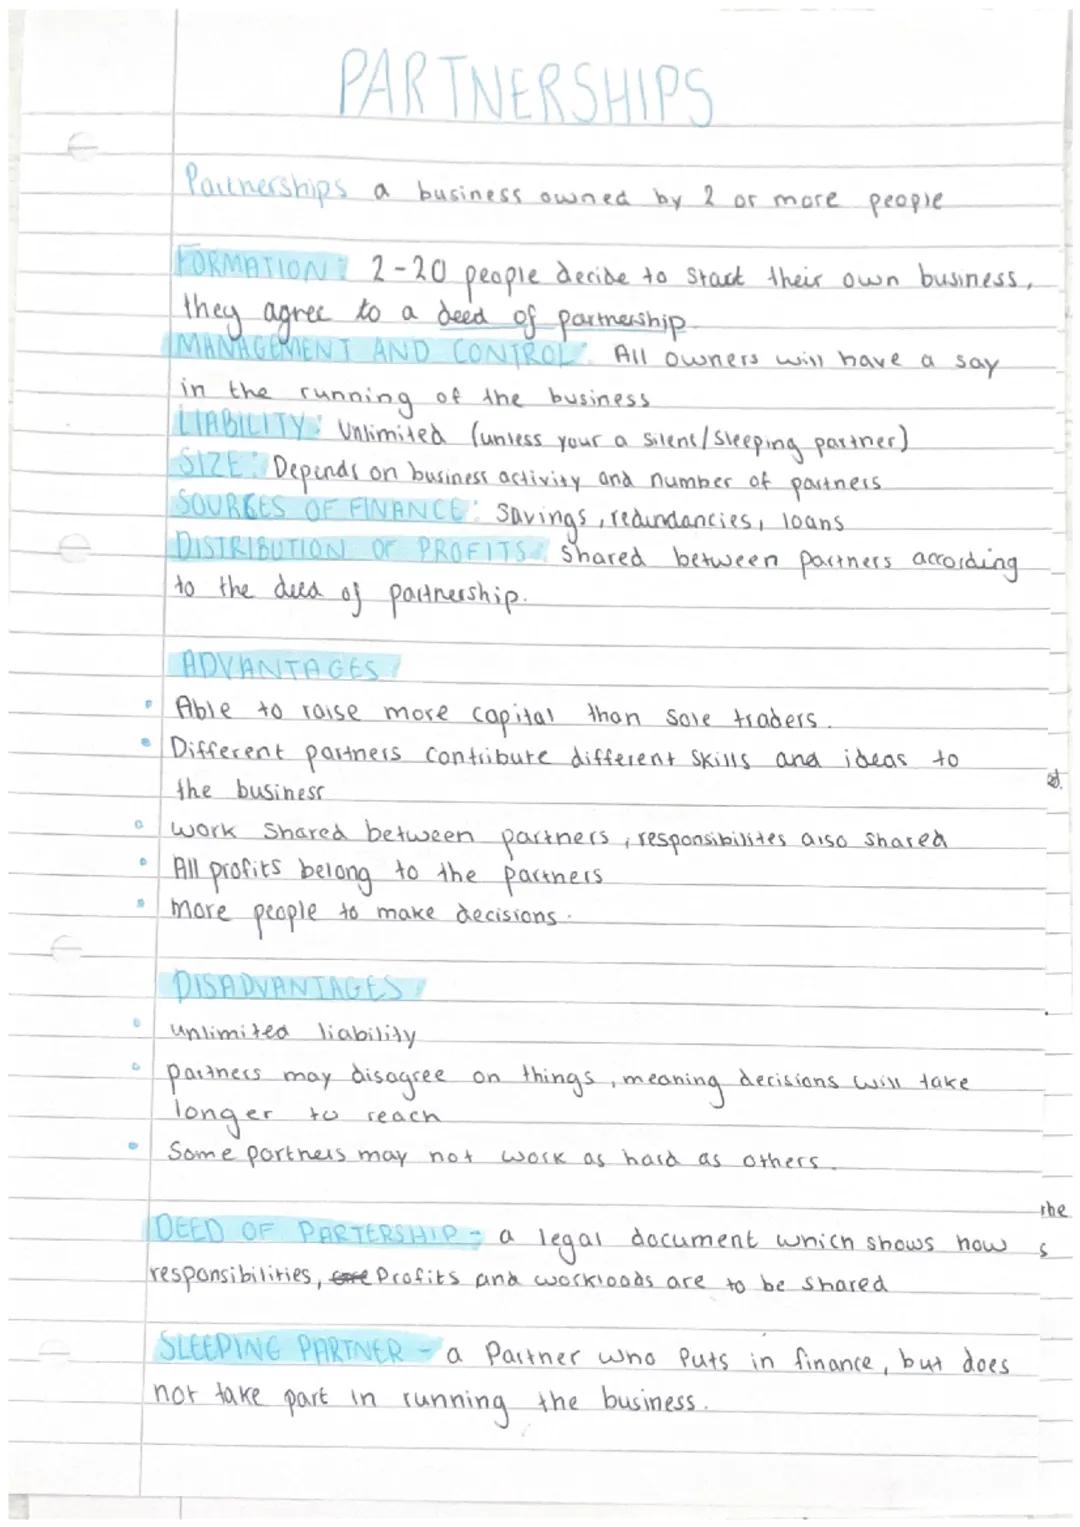 PARTNERSHIPS
Partnerships a business owned by 2 or more people
FORMATION: 2-20 people decide to start their own business,
they agree to a deed of partnership.
MANAGEMENT AND CONTROL: All owners will have a say
in the running of the business
LIABILITY: Unlimited (unless your a silent/sleeping partner)
SIZE: Depends on business activity and number of partners
SOURCES OF FINANCE: Savings, redundancies, loans
DISTRIBUTION OF PROFITS: Shared between partners according
to the deed of partnership.
ADVANTAGES:
• Able to raise more capital than sole traders.
• Different partners contribute different skills and ideas to
the business
• work shared between partners, responsibilites also shared
• All profits belong to the partners
• more people to make decisions.
DISADVANTAGES:
• unlimited liability
• partners may disagree on things, meaning decisions will take
longer to reach
• Some partners may not work as hard as others.
the
DEED OF PARTERSHIP - a legal document which shows how
s
responsibilities, Profits and workloads are to be shared
SLEEPING PARTNER - a Partner who Puts in finance, but does
not take part in running the business.